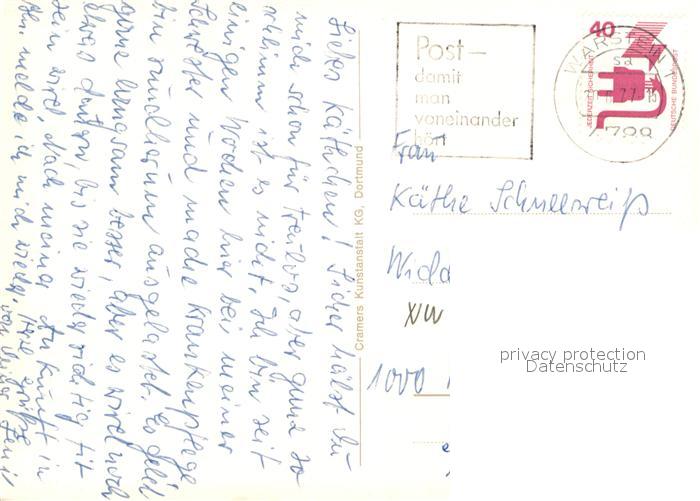 Liebes Käthchen! Sicher hältst Du
mich schon für treulos, aber ganz so
schlimm ist es nicht. Ich bin seit
einigen Wochen hier bei meiner
Schwester und mache Krankenpflege
bin rundherum ausgelastet. Es geht
ganz langsam besser, aber es wird noch
etwas dauern, bis sie wieder richtig fit
sein wird. Nach meiner Ankunft in
melde ich mich wieder. Grüße
von Deiner
Cramers Kunstanstalt KG, Dortmund
Post-
damit
man
voneinander
hört
WARSTEIN 1
4788
40
JEDERZEIT SICHERHEIT
DEUTSCHE BUNDESPOST
Frau
Käthe Schneeweiß
1000
privacy protection
Datenschutz